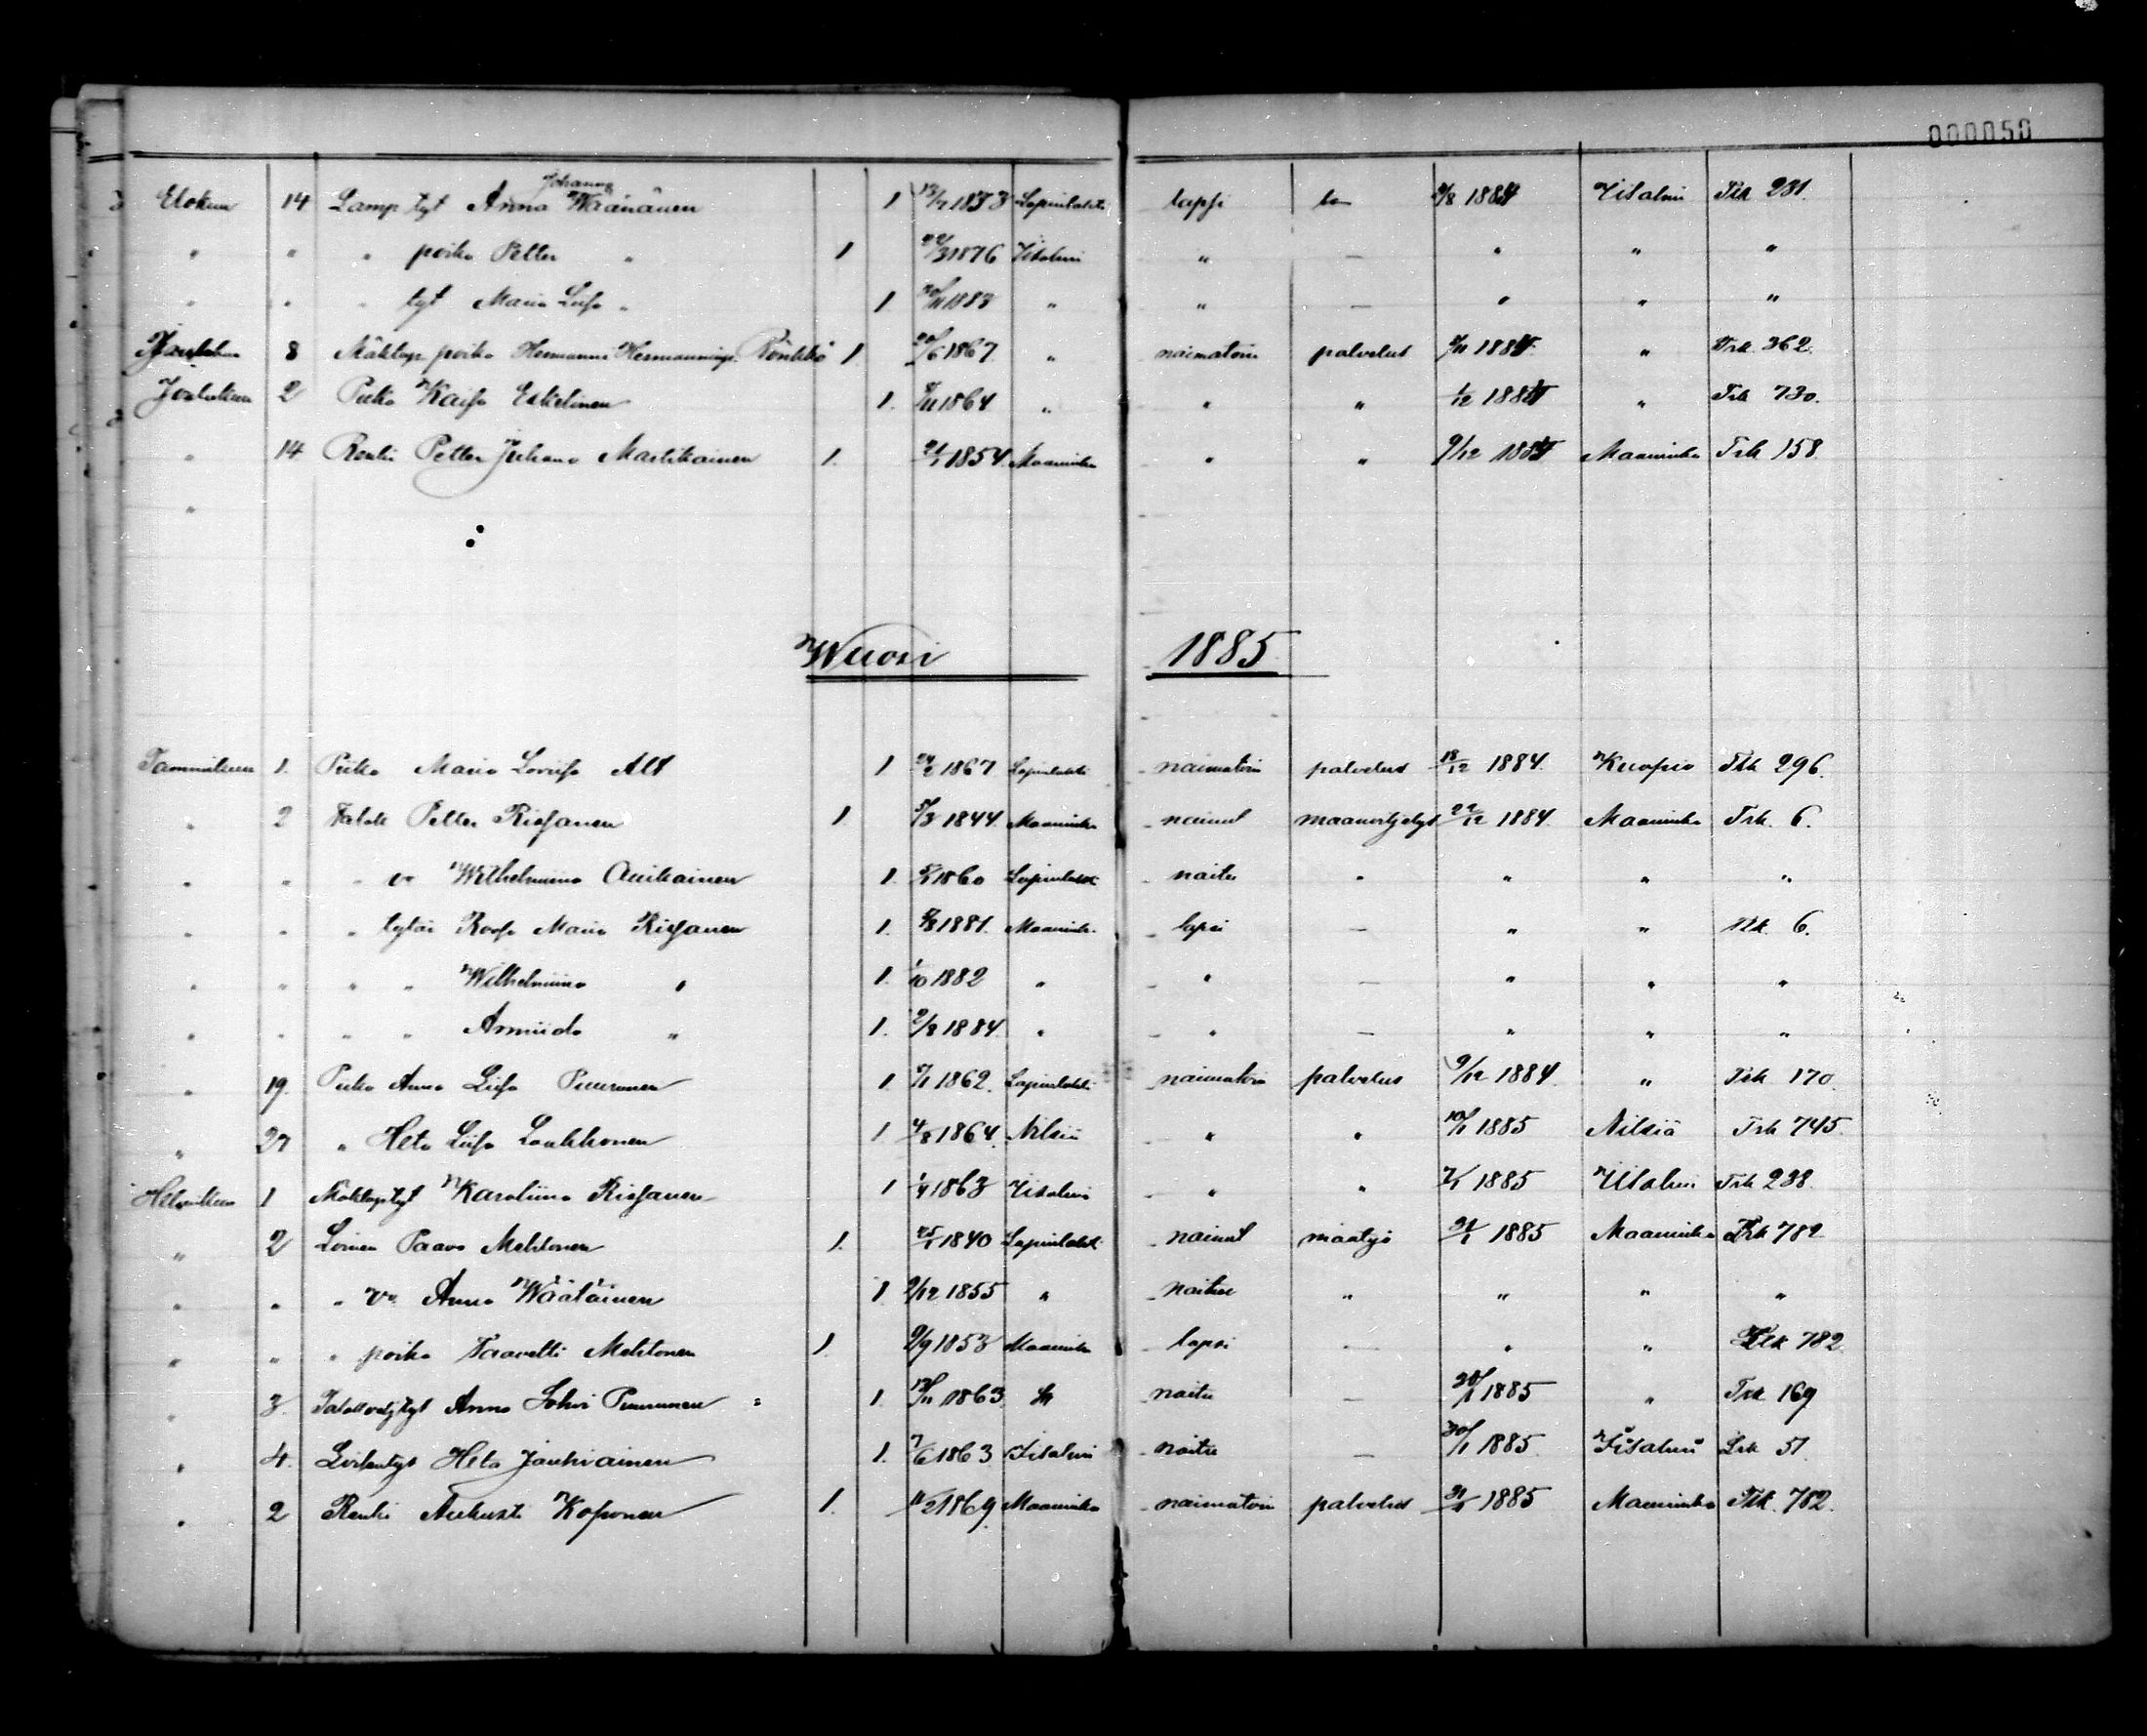 000050
Elokuu 14 Lamp. tyt Anna Johanna Wäänänen 1 13/7 1873 Lapinlahti lapsi 2/8 1884 Iisalmi Trk 281.
" " " poika Petter " 1 22/3 1876 Iisalmi " — " " "
" " " tyt Maria Liisa " 1. 1883 " " — " " "
8 Mäkitup. poika Hermanni Hermanninp. Rönkkö 1 20/6 1867 " naimatoin palvelus 1884 " Trk. 362.
Joulukuu 2 Piika Kaisa Eskelinen 1. 8/11 1864 " " " 1/12 1884 " Trk 730.
" 14 Renki Petter Juhana Martikainen 1. 21/1 1854 Maaninka " " 9/12 1884 Maaninka Trk 158.
"
Wuosi 1885
Tammikuu 1. Piika Maria Lovisa Alt 1 1867 Lapinlahti naimatoin palvelus 18/12 1884. Kuopio Trk 296.
" 2 Taloll Petter Rissanen 1 5/3 1844. Maaninka nainut maanviljelys 22/12 1884. Maaninka Trk. 6.
" " " v. Wilhelmiina Auikainen 1. 1860 Lapinlahti naitu " " " "
" " " tytär Roosa Maria Rissanen 1. 1881. Maaninka lapsi — " " Trk. 6.
" " " " Wilhelmiina " 1. 1/10 1882 " " — " " "
" " " " Armiida " 1. 2/8 1884. " " — " " "
" 19. Piika Anna Liisa Puurunen 1. 1862. Lapinlahti naimatoin palvelus 9/12 1884. " Trk 170.
" 27 " Heta Liisa Laukkonen 1 4/8 1864. Nilsiä " " 10/1 1885 Nilsiä Trk 745.
Helmikuu 1 Mäkitup. tyt Karoliina Rissanen 1 1/4 1863 Iisalmi " " 7/1 1885 Iisalmi Trk 238.
" 2 Loinen Paavo Mehtonen 1. 25/1 1840 Lapinlahti nainut maatyö 21/1 1885 Maaninka Trk 782
" " " v. Anna Wäätäinen 1. 2/12 1855 " naitu " " " "
" " " poika Taavetti Mehtonen 1. 9/9 1853 Maaninka lapsi — " " Trk 782
" 3. Talollvelj. tyt Anna Sohvi Puurunen 1. 12/11 1863 naitu — 30/1 1885 " Trk 169
" 4. Loisentyt Heta Jauhiainen 1. 7/6 1863 Iisalmi naitu — 30/1 1885. Iisalmi Trk 51.
" 2 Renki Aukusti Koponen 1. 11/2 1869. Maaninka naimatoin palvelus 21/1 1885 Maaninka Trk. 782.